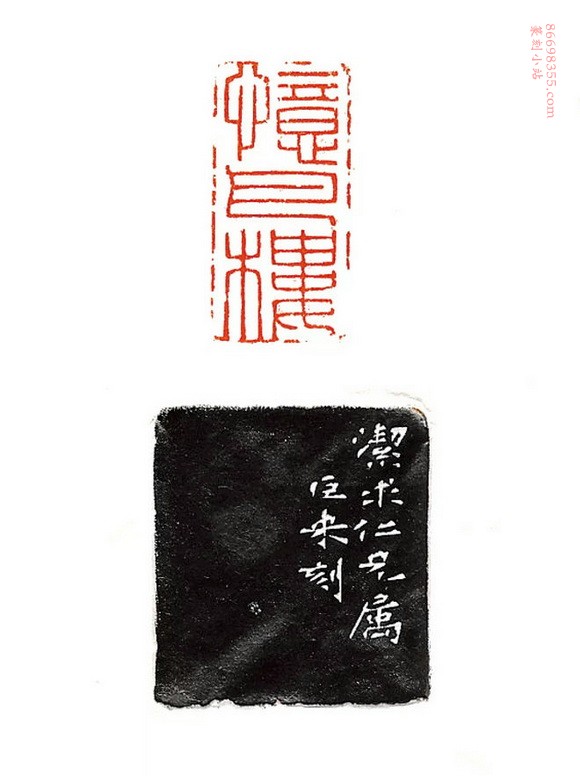 憶
樓
潔求仁兄属
巨来刻
篆刻小站
86698355.com